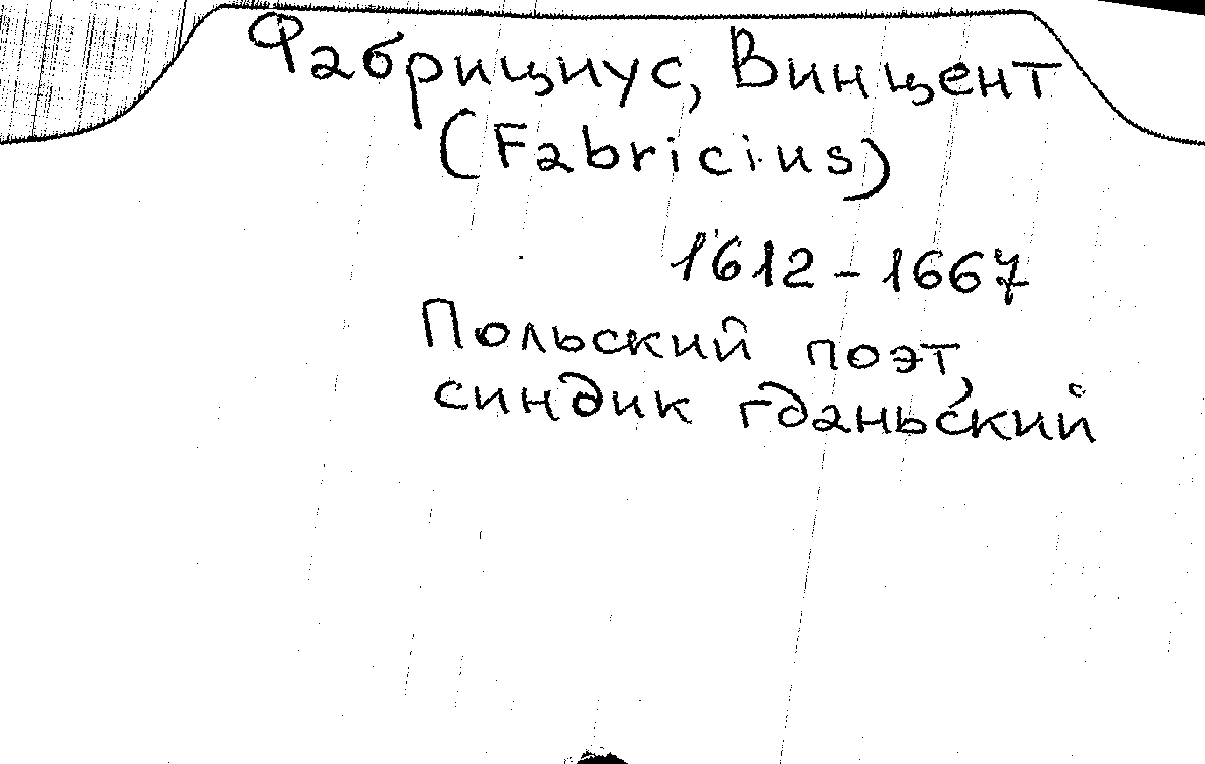 Фабрициус, Винцент
(Fabricius)
1612 - 1667
Польский поэт,
синдик гданьский